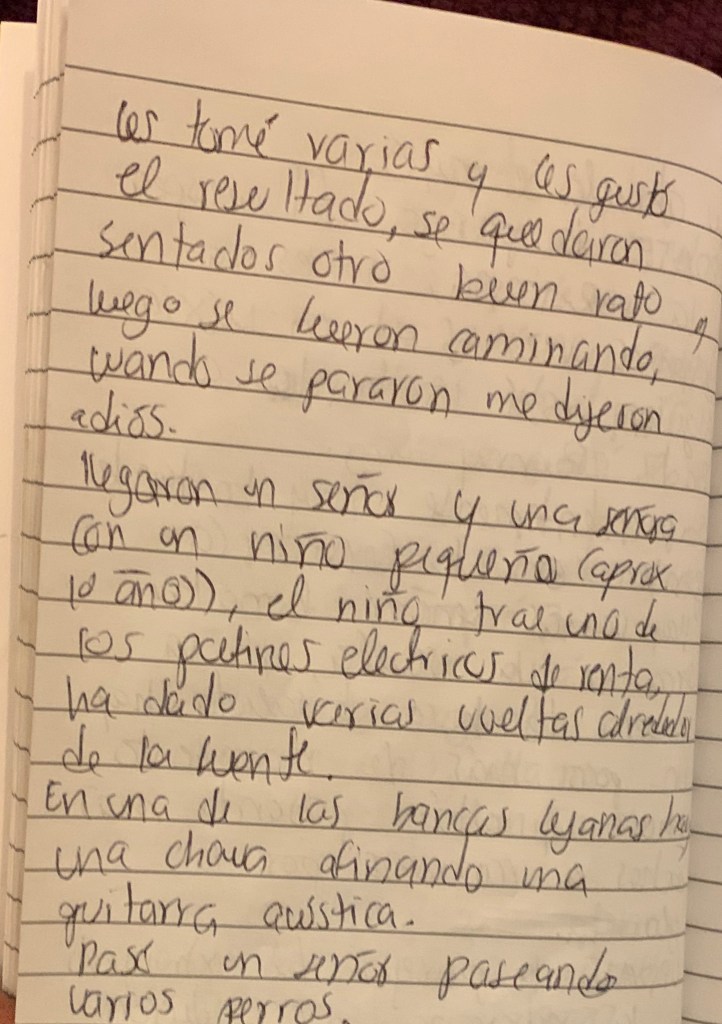 les tomé varias y les gustó
el resultado, se quedaron
sentados otro buen rato y
luego se fueron caminando,
cuando se pararon me dijeron
adiós.
llegaron un señor y una señora
con un niño pequeño (aprox
10 años), el niño trae uno de
los patines electricos de renta,
ha dado varias vueltas alrededor
de la fuente.
En una de las bancas lejanas hay
una chava afinando una
guitarra acústica.
Pasó un señor paseando
varios perros.